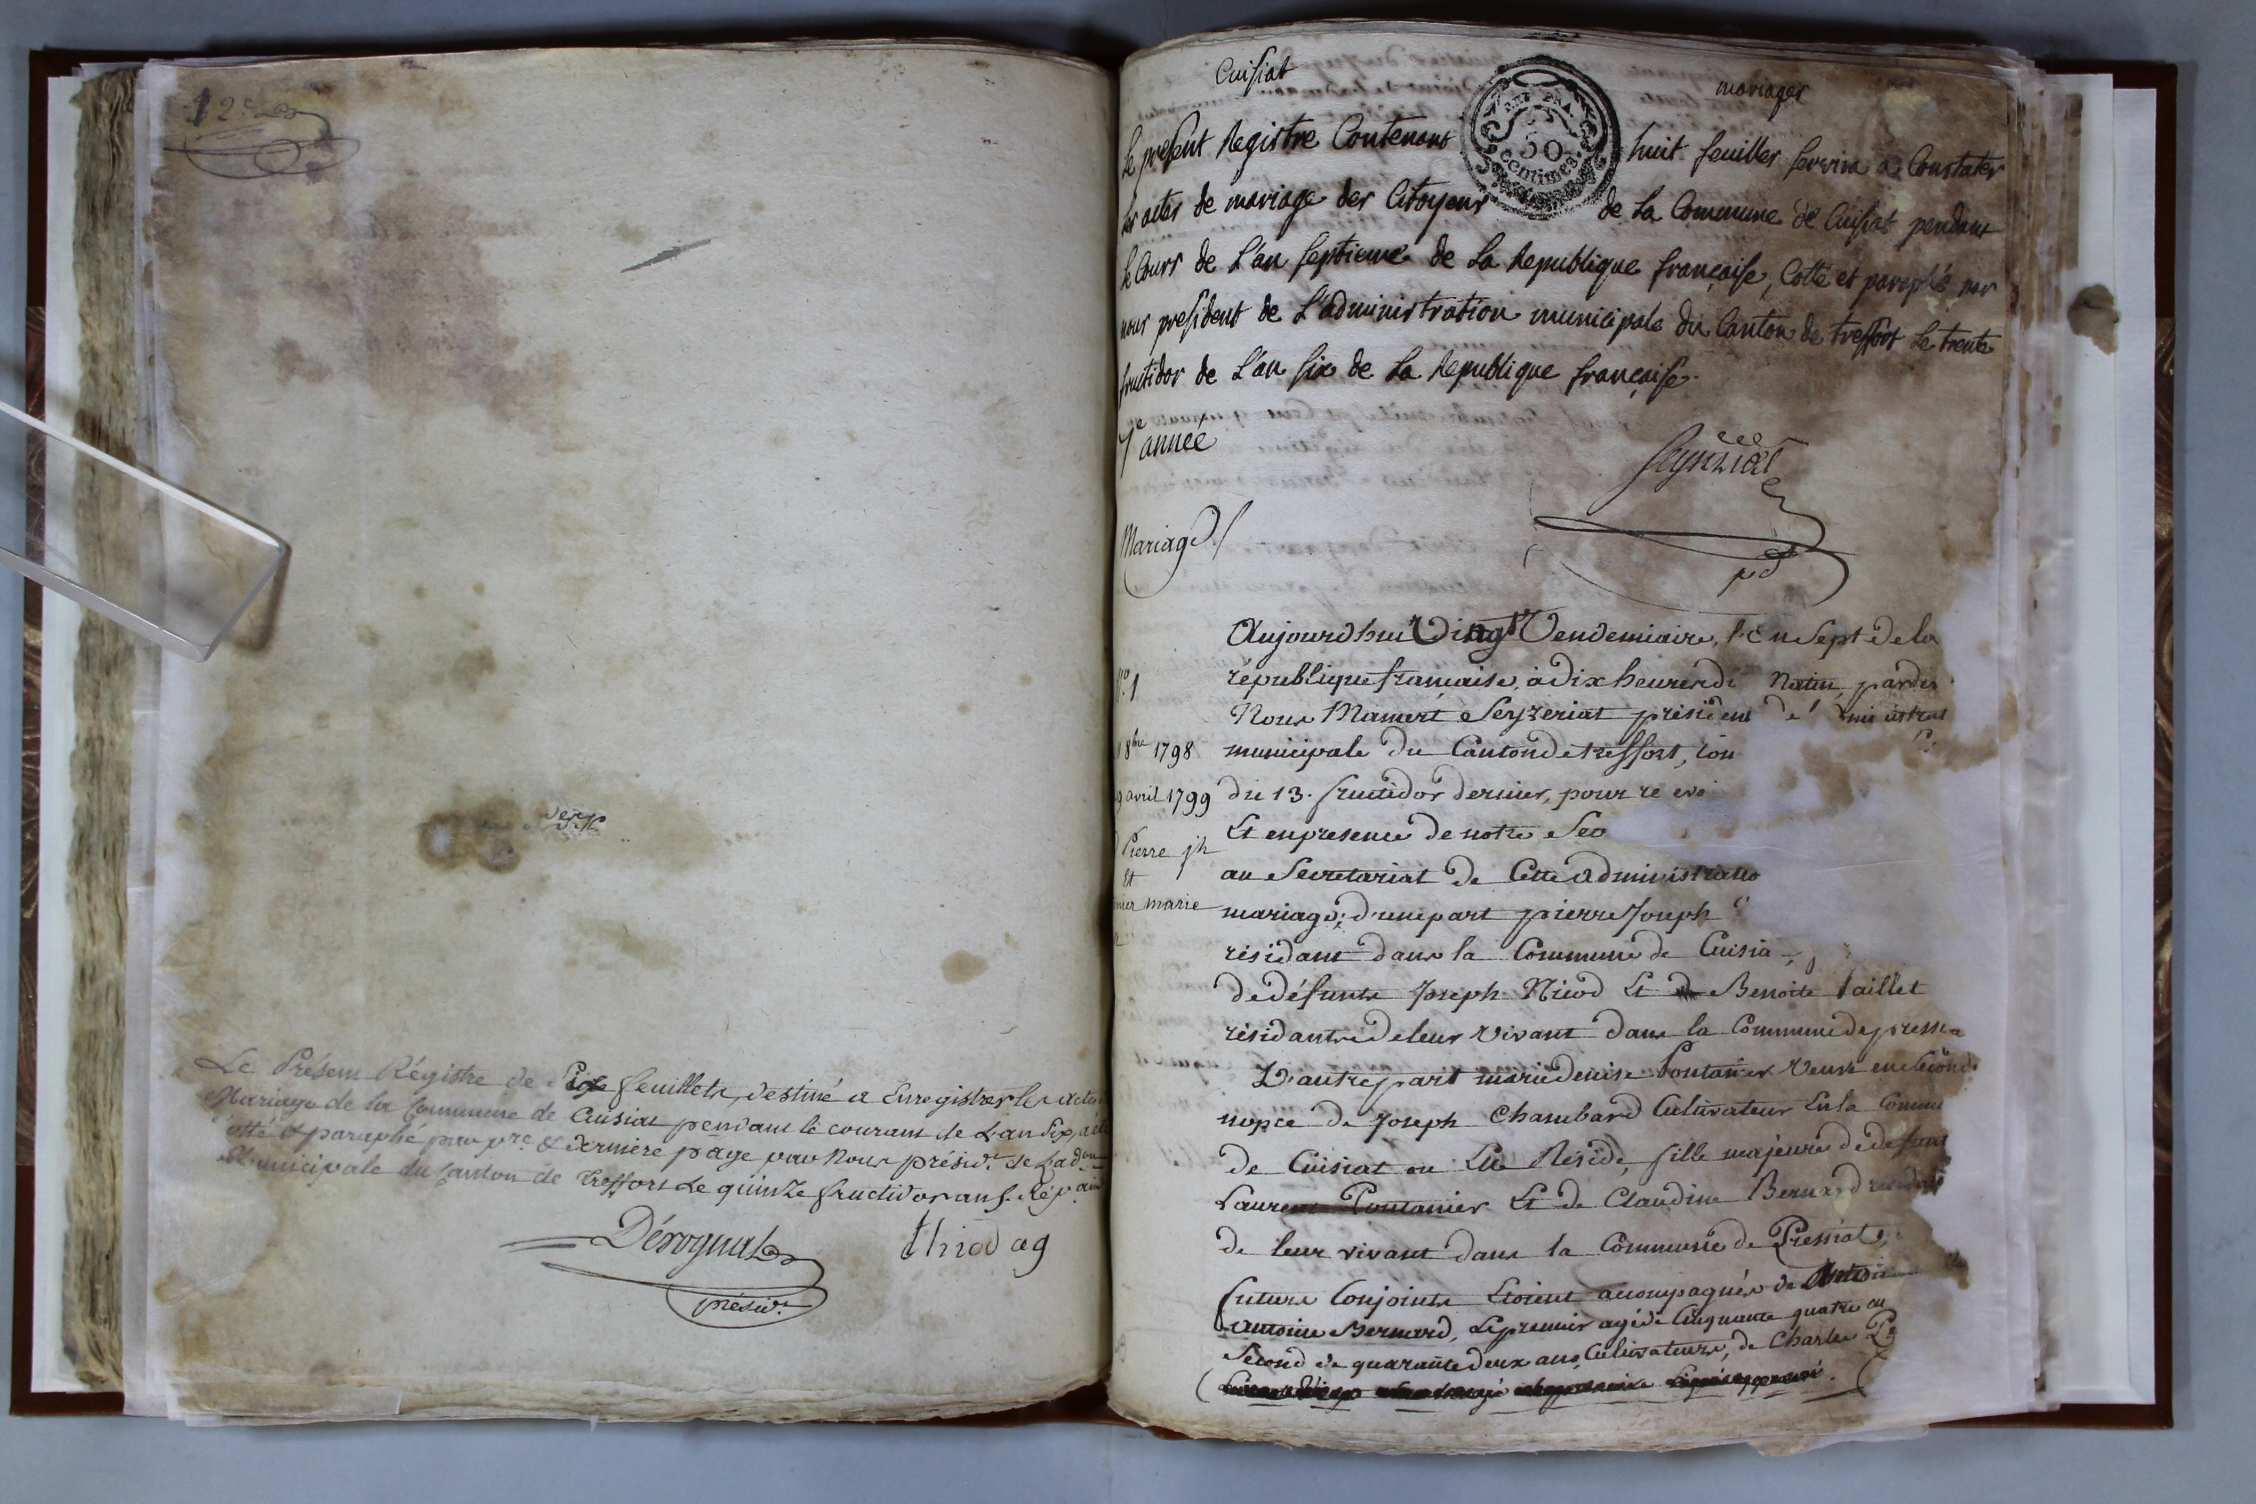 12e
Le Présent Régistre de dix feuillets, destiné a Enregistrer les actes
Mariage de la Commune de Cuisiat pendant le courant de Lan Six, a été
cotté et paraphé par pre. & dernière page par Nous présidt. de Ladon
Municipale du Canton de Treffort Le quinze fructidor an 5. Rép.
Dérognat
thiodag
présidt.
Cuisiat
mariages
REP. FRA
50
centimes.
Le present Registre Contenant huit feuilles servira a Constater
les actes de mariage des Citoyens de la Commune de Cuisiat pendant
le Cours de L'an septieme de La Republique française, Cotté et paraphé par
nous president de L'administration municipale du Canton de treffort Le trente
fructidor de L'an six de La Republique française.
7e année
Seyzeriat
pdt
Mariage
Aujourd'hui Vingt Vendemiaire, l'En Sept de la
No. 1
république française, à dix heures du Matin, pardev
Nous Mamert Seyzeriat président de
8bre 1798
municipale du Canton de treffort,
avril 1799
du 13. fructidor dernier, pour
Et en presence de notre Sec
Pierre jh
Et
au Secretariat de Cette administratio
marie
mariage; d'une part pierre Joseph
résidant dans la Commune de Cuisia
de défunts Joseph Nicod Et de Benoite Paillet
résidants de leur Vivant dans la Commune de pressia
D'autre part marie denise Pontanier Veuve en Second
nopce de Joseph Chambard Cultivateur En la Commu
de Cuisiat ou Elle Réside, fille majeure de defunt
Laurent Pontanier Et de Claudine Bernard résidan
de leur vivant dans la Commune de Pressiat,
futurs Conjoints Etoient accompagnés de
Antoine Bernard, Le premier agé de Cinquante quatre an
Second de quarante deux ans, Cultivateurs, de Charles